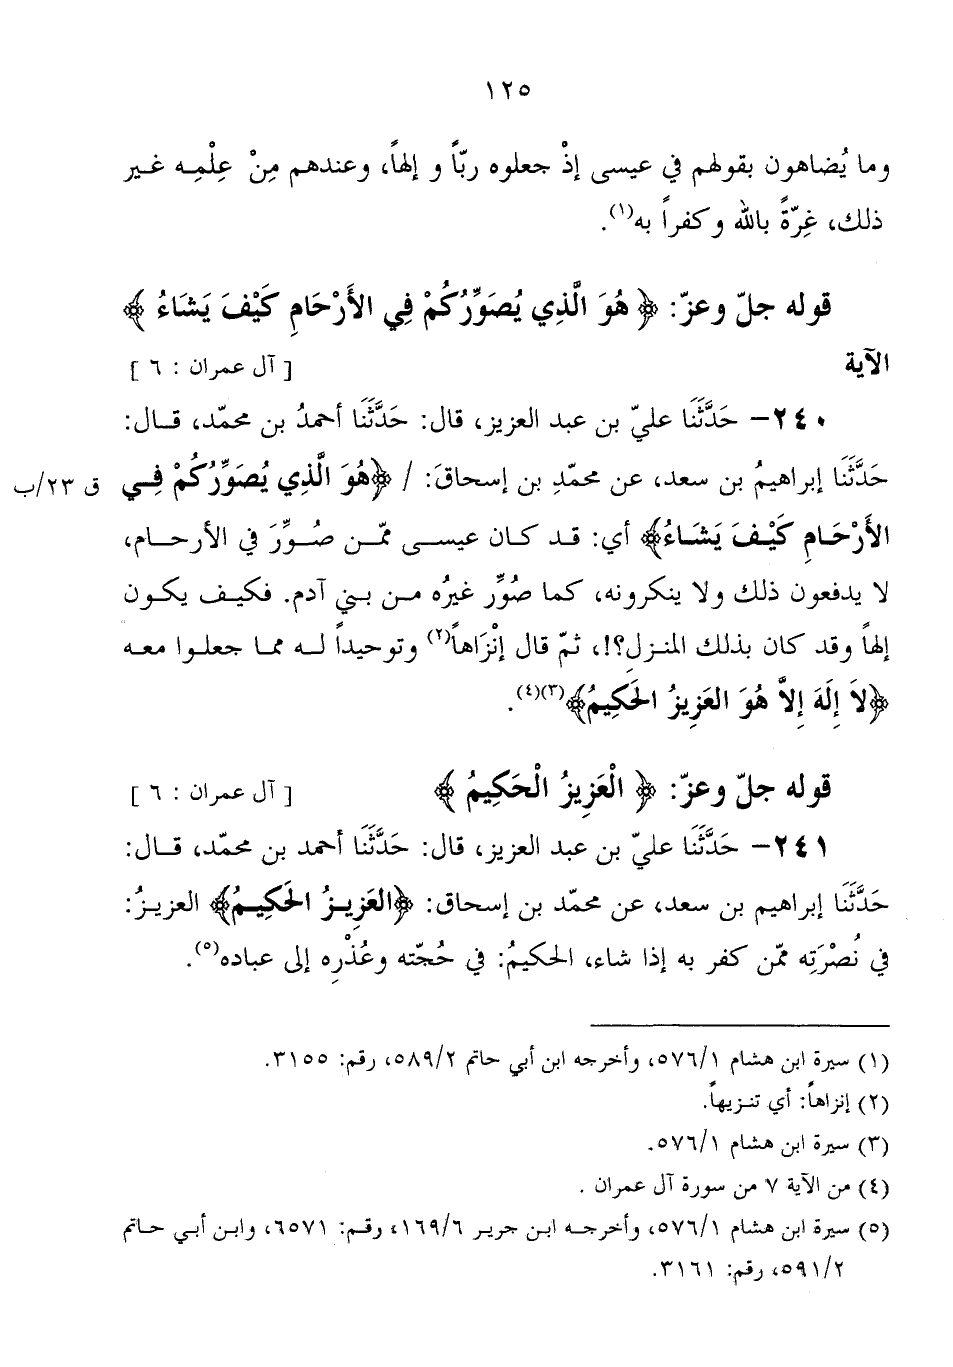 ١٢٥
وما يُضاهون بقولهم في عيسى إذْ جعلوه ربّاً و إلهاً، وعندهم مِنْ عِلْمِـه غـير
ذلك، غِرّةً بالله وكفراً به(١).
قوله جلّ وعزّ: ﴿ هُوَ الَّذِي يُصَوِّرُكُمْ فِي الأَرْحَامِ كَيْفَ يَشَاءُ ﴾
الآية [ آل عمران : ٦ ]
٢٤٠– حَدَّثَنَا عليّ بن عبد العزيز، قال: حَدَّثَنَا أحمدُ بن محمّد، قــال:
حَدَّثَنَا إبراهيمُ بن سعد، عن محمّدِ بن إسحاقَ: / ﴿هُوَ الَّذِي يُصَوِّرُكُمْ فِـي ق ٢٣/ب
الأَرْحَـامِ كَيْـفَ يَشَـاءُ﴾ أي: قـد كـان عيسـى ممّـن صُـوِّرَ في الأرحـام،
لا يدفعون ذلك ولا ينكرونه، كما صُوِّر غيرُه مـن بـني آدم. فكيـف يكـون
إلهاً وقد كان بذلك المنـزلِ؟!، ثمّ قال إنْزَاهاً(٢) وتوحيداً لـه ممـا جعلـوا معـه
﴿لاَ إِلَهَ إِلاَّ هُوَ العَزِيزُ الحَكِيمُ﴾(٣)(٤).
قوله جلّ وعزّ: ﴿ الْعَزِيزُ الْحَكِيمُ ﴾ [ آل عمران : ٦ ]
٢٤١– حَدَّثَنَا عليّ بن عبد العزيز، قال: حَدَّثَنَا أحمد بن محمّد، قــال:
حَدَّثَنَا إبراهيم بن سعد، عن محمّد بن إسحاق: ﴿العَزِيـزُ الحَكِيـمُ﴾ العزيـزُ:
في نُصْرَتِه ممّن كفر به إذا شاء، الحكيمُ: في حُجّته وعُذْرِه إلى عباده(٥).
(١) سيرة ابن هشام ٥٧٦/١، وأخرجه ابن أبي حاتم ٥٨٩/٢، رقم: ٣١٥٥.
(٢) إنزاهاً: أي تنـزيهاً.
(٣) سيرة ابن هشام ٥٧٦/١.
(٤) من الآية ٧ من سورة آل عمران .
(٥) سيرة ابن هشام ٥٧٦/١، وأخرجـه ابـن جريـر ١٦٩/٦، رقـم: ٦٥٧١، وابـن أبـي حـاتم
٥٩١/٢، رقم: ٣١٦١.